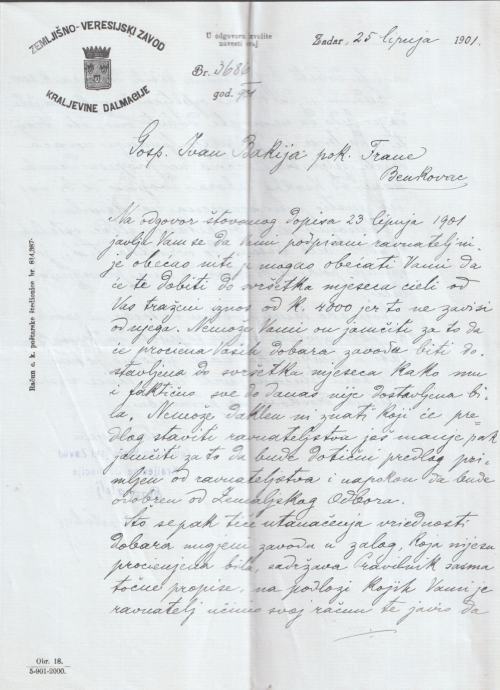 ZEMLJIŠNO-VERESIJSKI ZAVOD
KRALJEVINE DALMACIJE
U odgovoru izvolite
navesti
Br. 3686
god. 901
Zadar, 25 lipnja 1901.
Gosp. Ivan Bakija pok. Frane
Benkovac
Na odgovor štovanog dopisa 23 lipnja 1901
javlja Vam se da Vam podpisani ravnatelj ni-
je obećao niti je mogao obećati Vami da
će te dobiti do svršetka mjeseca cieli od
Vas traženi iznos od K. 4000 jer to ne zavisi
od njega. Nemože Vami on jamčiti za to da
će procina Vaših dobara zavodu biti do-
stavljena do svršetka mjeseca kako mu
i faktično sve do danas nije dostavljena bi-
la. Nemože daklem ni znati koji će pre-
dlog staviti ravnateljstvu još manje pak
jamčiti za to da bude dotični predlog pri-
mljen od ravnateljstva i napokon da bude
odobren od Zemaljskog Odbora.
Što se pak tiče utanačenja vriednosti
dobara zavodu u zalog, koja nijesu
procinjena bila, sadržava Pravilnik sasma
točne propise, na podlozi kojih Vami je
ravnatelj učinio svoj račun te javio da
Račun c. k. poštarske štedionice br. 814,987.
Obr. 18.
5-901-2000.